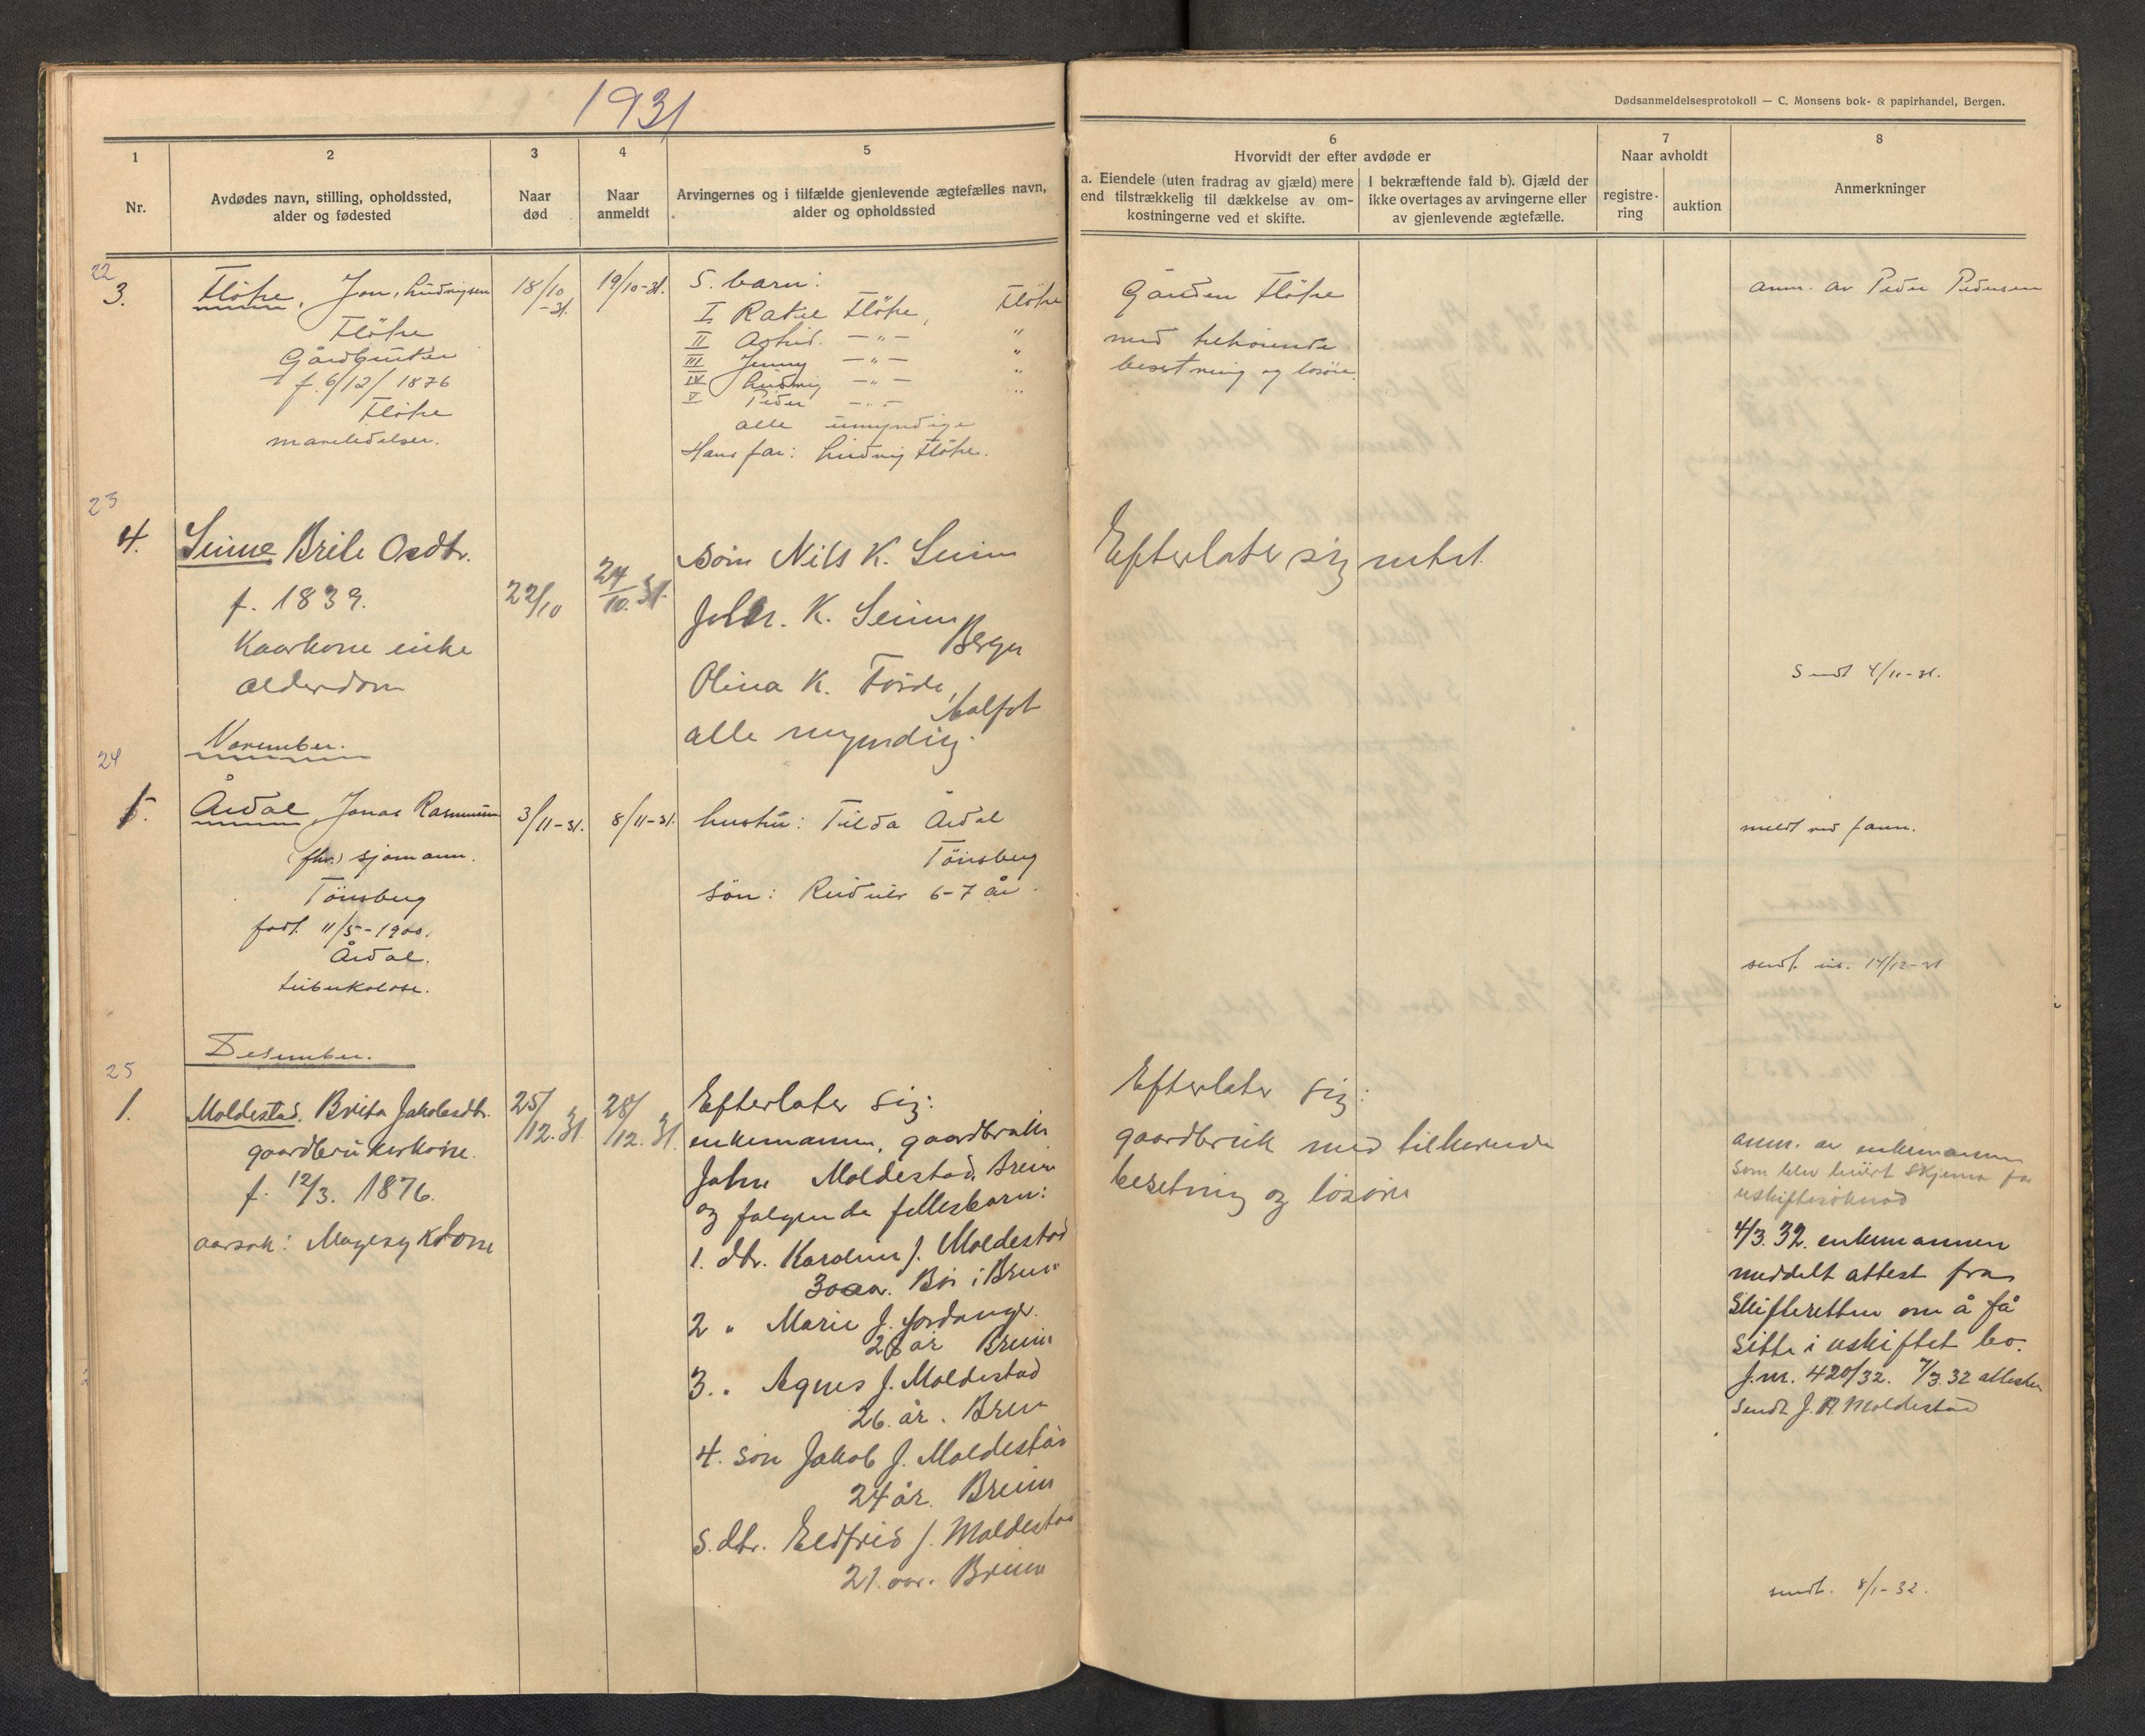 1931
Dødsanmeldelsesprotokoll — C. Monsens bok- & papirhandel, Bergen.
1
2
3
4
5
6
7
8
Nr.
Avdødes navn, stilling, opholdssted,
alder og fødested
Naar
død
Naar
anmeldt
Arvingernes og i tilfælde gjenlevende ægtefælles navn,
alder og opholdssted
Hvorvidt der efter avdøde er
a. Eiendele (uten fradrag av gjæld) mere
end tilstrækkelig til dækkelse av om-
kostningerne ved et skifte.
I bekræftende fald b). Gjæld der
ikke overtages av arvingerne eller
av gjenlevende ægtefælle.
Naar avholdt
registre-
ring
auktion
Anmerkninger
22
3.
Fløtre, Jon Ludvigsen
Fløtre
Gårdbruker
f. 6/12/1876
Fløtre
18/10
-31.
19/10-31.
5. barn:
I Fløtre, Fløtre
II Astrid. —"— "
III Jenny —"— "
IV Ludvig —"— "
V Peder —"—
alle umyndige
Hans far: Ludvig Fløtre.
Garden Fløtre
med tilhørende
besetning og løsøre.
anm. av Peder Pedersen
23
4.
Seime Brite
f. 1839.
Kaarkone enke
alderdom
22/10
24/10.31.
søn Nils K. Seim
Johs. K. Seim
Bergen
Olina K. Førde,
Aalfot
alle myndig.
Efterlater sig intet.
Sendt 4/11-31.
November.
24
5.
Årdal, Jonas Rasmussen
(fhv.) sjømann.
Tønsberg
født 11/5-1900.
Årdal.
tuberkulose.
3/11-31.
8/11-31.
hustru: Tilda Årdal
Tønsberg
søn: 6-7 år.
meldt ved fam.
sendt 14/12-31
Desember.
25
1.
Moldestad, Brita Jakobsdtr.
gaardbrukerkone.
f. 12/3. 1876.
aarsak: Magesykdom
25/12.31.
28/12.31.
Efterlater sig:
enkemann, gaardbruker
Moldestad, Breim
og følgende fellesbarn:
1. dtr. Karoline J. Moldestad
30 aar. Bor i Breim
2 " Marie J.
28 år Breim
3. " Agnes J. Moldestad
26. år. Breim
4. søn Jakob J. Moldestad
24 år. Breim
5. dtr. Eldfrid J. Moldestad
21. aar. Breim
Efterlater sig:
gaardbruk med tilhørende
besetning og løsøre
anm. av enkemannen
som blev skjema for
uskiftesøknad
4/3.32. enkemannen
meddelt attest fra
Skifteretten om å få
Sitte i uskiftet bo.
J.nr. 420/32. 7/3.32 attesten
Sendt J. A. Moldestad
sendt. 8/1-32.